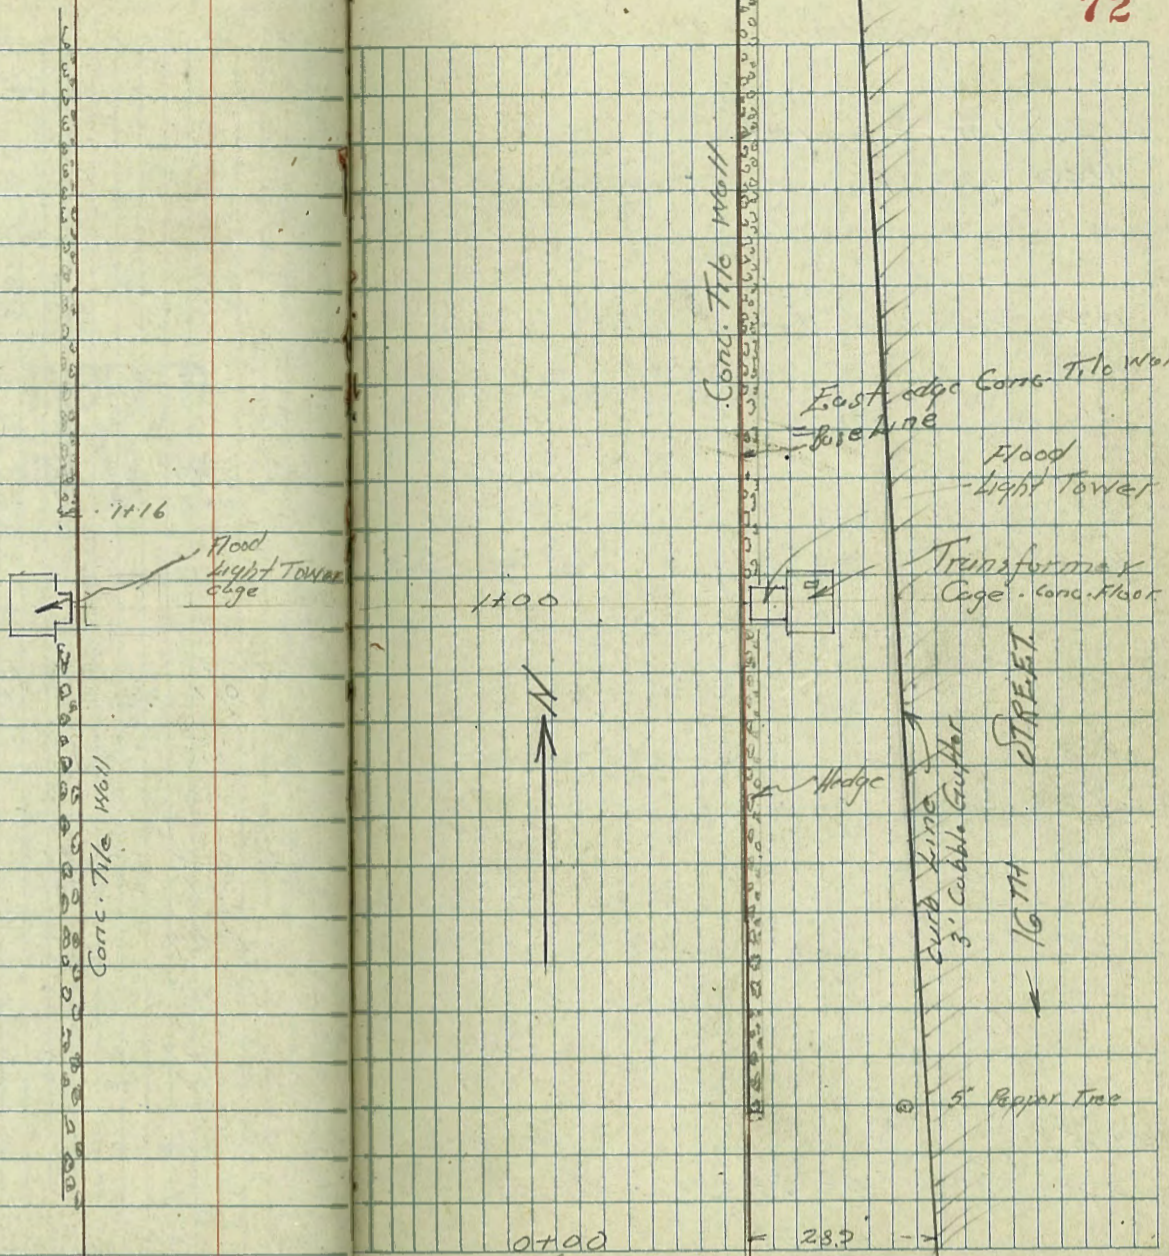 72
1+16
Flood
Light Tower
Cage
Conc. Tile Wall
Conc. Tile Wall
East edge Conc. Tile Wal
= Base Line
Flood
Light Tower
Transformer
Cage. Conc. Floor.
1+00
N
Hedge
Curb Line
3' Cobble Gutter
16TH STREET.
5" Pepper Tree
0+00